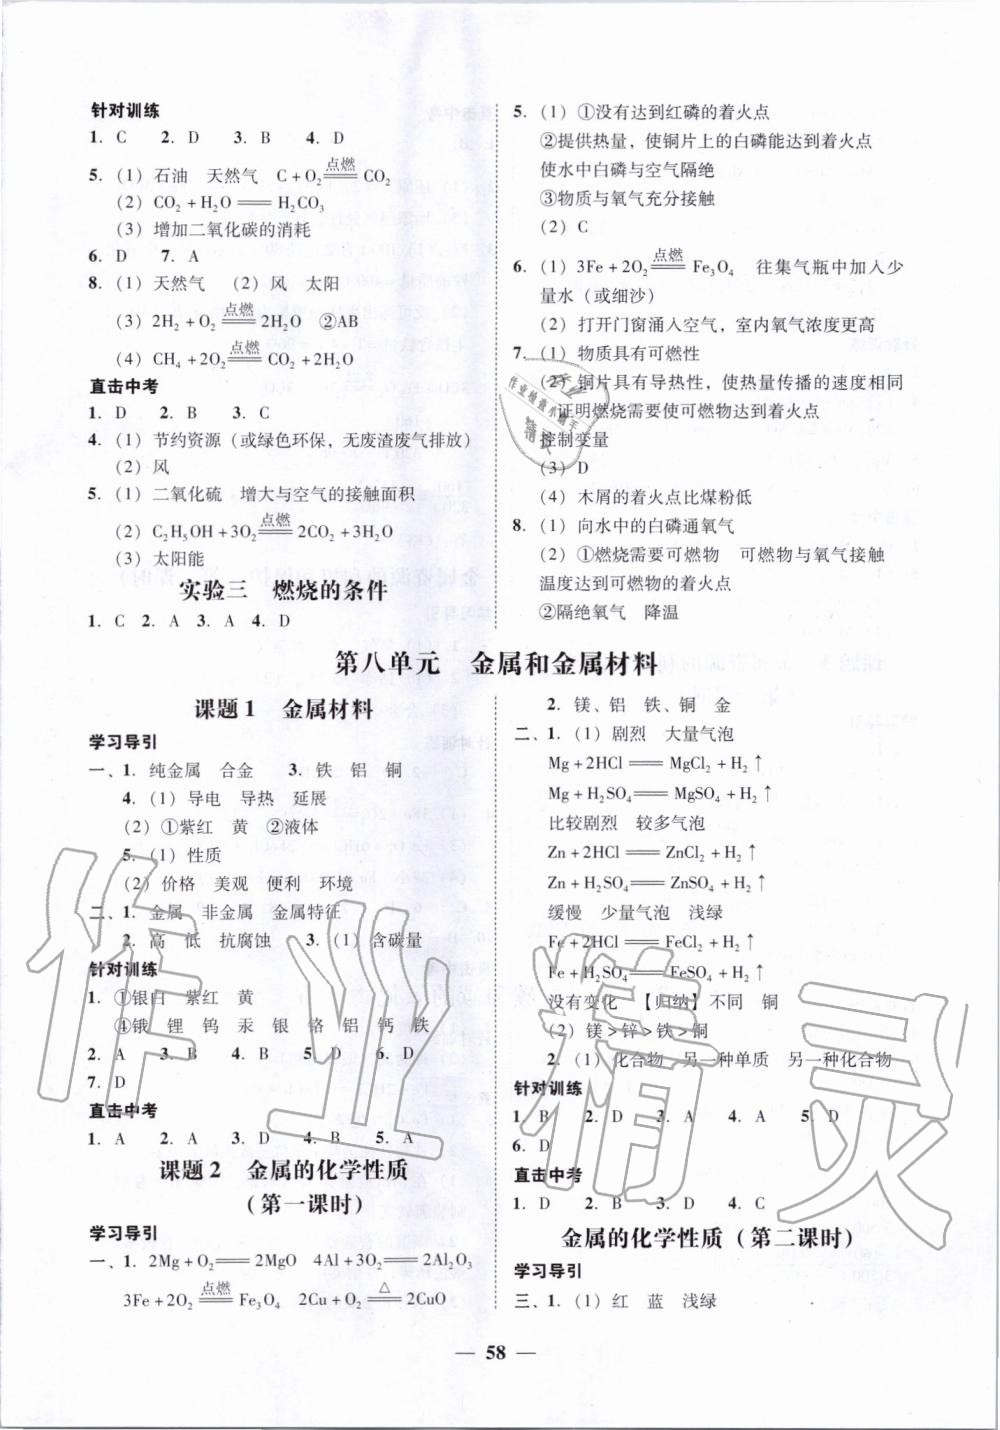 针对训练
1. C  2. D  3. B  4. D
5. (1) 石油  天然气  C + O₂ ══点燃══ CO₂
(2) CO₂ + H₂O ══ H₂CO₃
(3) 增加二氧化碳的消耗
6. D  7. A
8. (1) 天然气  (2) 风  太阳
(3) 2H₂ + O₂ ══点燃══ 2H₂O  ②AB
(4) CH₄ + 2O₂ ══点燃══ CO₂ + 2H₂O
直击中考
1. D  2. B  3. C
4. (1) 节约资源（或绿色环保，无废渣废气排放）
(2) 风
5. (1) 二氧化硫  增大与空气的接触面积
(2) C₂H₅OH + 3O₂ ══点燃══ 2CO₂ + 3H₂O
(3) 太阳能
实验三  燃烧的条件
1. C  2. A  3. A  4. D
5. (1) ①没有达到红磷的着火点
②提供热量，使铜片上的白磷能达到着火点
使水中白磷与空气隔绝
③物质与氧气充分接触
(2) C
6. (1) 3Fe + 2O₂ ══点燃══ Fe₃O₄  往集气瓶中加入少
量水（或细沙）
(2) 打开门窗涌入空气，室内氧气浓度更高
7. (1) 物质具有可燃性
(2) 铜片具有导热性，使热量传播的速度相同
证明燃烧需要使可燃物达到着火点
控制变量
(3) D
(4) 木屑的着火点比煤粉低
8. (1) 向水中的白磷通氧气
(2) ①燃烧需要可燃物  可燃物与氧气接触
温度达到可燃物的着火点
②隔绝氧气  降温
第八单元  金属和金属材料
课题 1  金属材料
学习导引
一、1. 纯金属  合金  3. 铁  铝  铜
4. (1) 导电  导热  延展
(2) ①紫红  黄  ②液体
5. (1) 性质
(2) 价格  美观  便利  环境
二、1. 金属  非金属  金属特征
2. 高  低  抗腐蚀  3. (1) 含碳量
针对训练
1. ①银白  紫红  黄
④锇  锂  钨  汞  银  铬  铝  钙  铁
2. A  3. B  4. B  5. D  6. D
7. D
直击中考
1. A  2. A  3. D  4. B  5. A
课题 2  金属的化学性质
（第一课时）
学习导引
一、1. 2Mg + O₂ ══ 2MgO  4Al + 3O₂ ══ 2Al₂O₃
3Fe + 2O₂ ══点燃══ Fe₃O₄  2Cu + O₂ ══△══ 2CuO
2. 镁、铝  铁、铜  金
二、1. (1) 剧烈  大量气泡
Mg + 2HCl ══ MgCl₂ + H₂↑
Mg + H₂SO₄ ══ MgSO₄ + H₂↑
比较剧烈  较多气泡
Zn + 2HCl ══ ZnCl₂ + H₂↑
Zn + H₂SO₄ ══ ZnSO₄ + H₂↑
缓慢  少量气泡  浅绿
Fe + 2HCl ══ FeCl₂ + H₂↑
Fe + H₂SO₄ ══ FeSO₄ + H₂↑
没有变化  【归纳】不同  铜
(2) 镁＞锌＞铁＞铜
2. (1) 化合物  另一种单质  另一种化合物
针对训练
1. B  2. D  3. A  4. A  5. D
6. D
直击中考
1. D  2. B  3. D  4. C
金属的化学性质（第二课时）
学习导引
三、1. (1) 红  蓝  浅绿
— 58 —
作业精灵